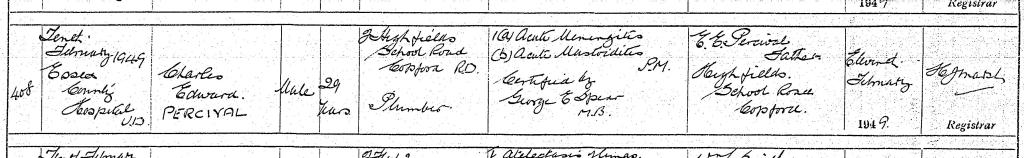 1947
Registrar
408
Tenth
February 1949
Essex
County
Hospital
U.D.
Charles
Edward.
PERCIVAL
Male
29
Years
Highfields
School Road
Copford R.D.
Plumber
1(a) Acute Meningitis
(b) Acute Mastoiditis
P.M.
Certified by
George E Spear
M.B.
E.E. Percival
Father
Highfields.
School Road
Copford.
Eleventh
February
1949.
Registrar
Atelectasis